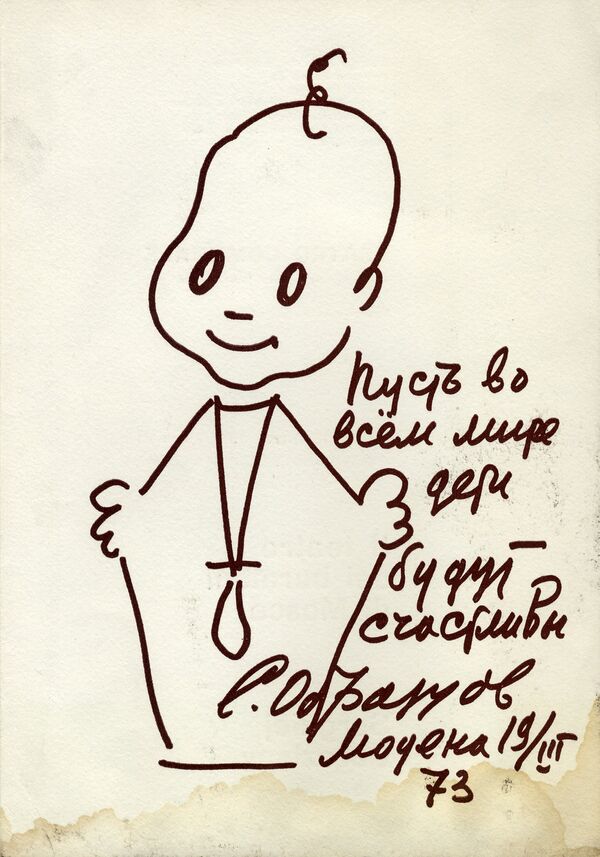 Пусть во
всём мире
дети
будут
счастливы
С. Образцов
Модена 19/III
73